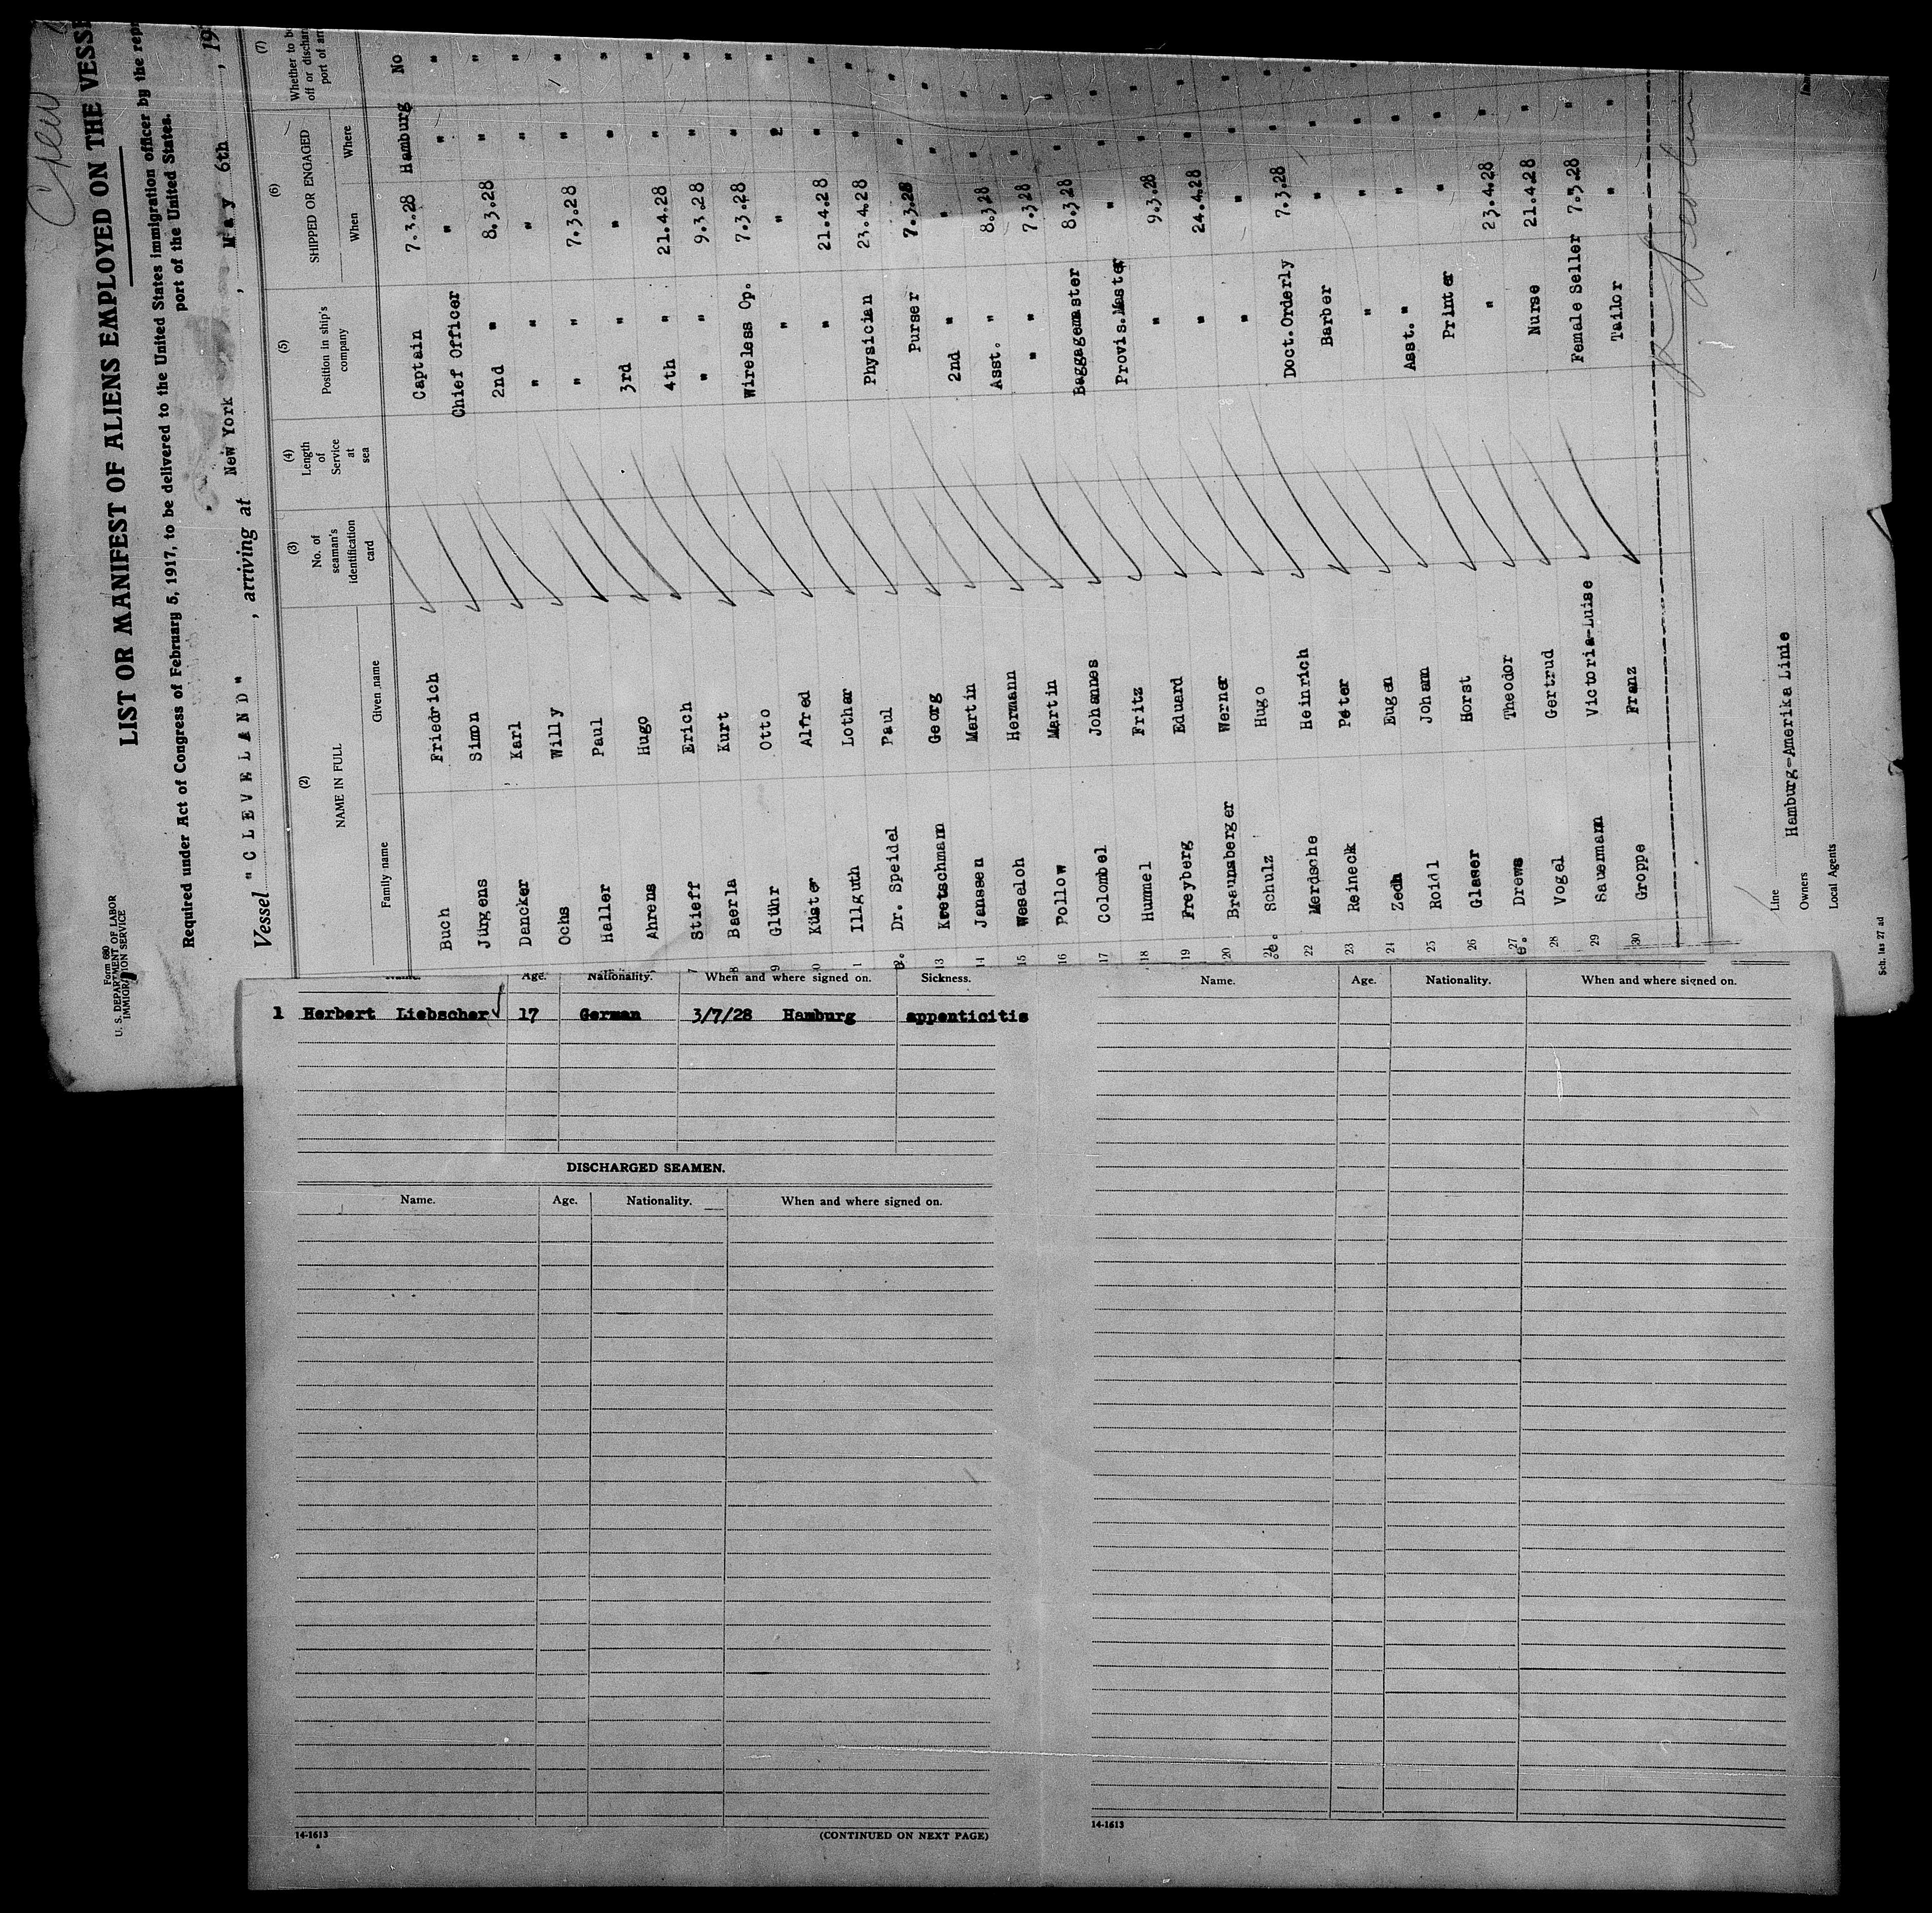 Crew
Form 680
U. S. DEPARTMENT OF LABOR
IMMIGRATION SERVICE
LIST OR MANIFEST OF ALIENS EMPLOYED ON THE VESSE
Required under Act of Congress of February 5, 1917, to be delivered to the United States immigration officer by the rep
port of the United States.
Vessel "CLEVELAND", arriving at New York, May 6th, 19
(2) (3) (4) (5) (6) (7)
NAME IN FULL No. of seaman's identification card Length of Service at sea Position in ship's company SHIPPED OR ENGAGED Whether to b off or dischar port of ar
Family name Given name When Where
Buch Friedrich Captain 7.3.28 Hamburg No
Jürgens Simon Chief Officer " " "
Dancker Karl 2nd " 8.3.28 " "
Ochs Willy " " " " "
Haller Paul " " 7.3.28 " "
Ahrens Hugo 3rd " " " "
7 Stieff Erich 4th " 21.4.28 " "
8 Baerla Kurt " " 9.3.28 " "
9 Glühr Otto Wireless Op. 7.3.28 " "
0 Küster Alfred " " " "
1 Illguth Lothar " 21.4.28 " "
2. Dr. Speidel Paul Physician 23.4.28 " "
13 Kretschmann Georg Purser 7.3.28 " "
14 Janssen Martin 2nd " " " "
15 Weseloh Hermann Asst. " 8.3.28 " "
16 Pollow Martin " " 7.3.28 " "
17 Colombel Johannes Baggagemaster 8.3.28 " "
18 Hummel Fritz Provis.Master " " "
19 Freyberg Eduard " 9.3.28 " "
20 Braunsberger Werner " 24.4.28 " "
21 Schulz Hugo " " " "
22 Merdsche Heinrich Doct.Orderly 7.3.28 " "
23 Reineck Peter Barber " " "
24 Zedh Eugen " " " "
25 Roidl Johann Asst. " " " "
26 Glaser Horst Printer " " "
27 Drews Theodor " 23.4.28 " "
28 Vogel Gertrud Nurse 21.4.28 " "
29 Sauemann Victoria-Luise Female Seller 7.3.28 " "
30 Groppe Franz Tailor " " "
Line
Owners Hamburg-Amerika Linie
Local Agents
Sch. las 27 ad
Name. Age. Nationality. When and where signed on. Sickness.
1 Herbert Liebscher 17 German 3/7/28 Hamburg appenticitis
DISCHARGED SEAMEN.
Name. Age. Nationality. When and where signed on.
14-1613 (CONTINUED ON NEXT PAGE)
Name. Age. Nationality. When and where signed on.
14-1613